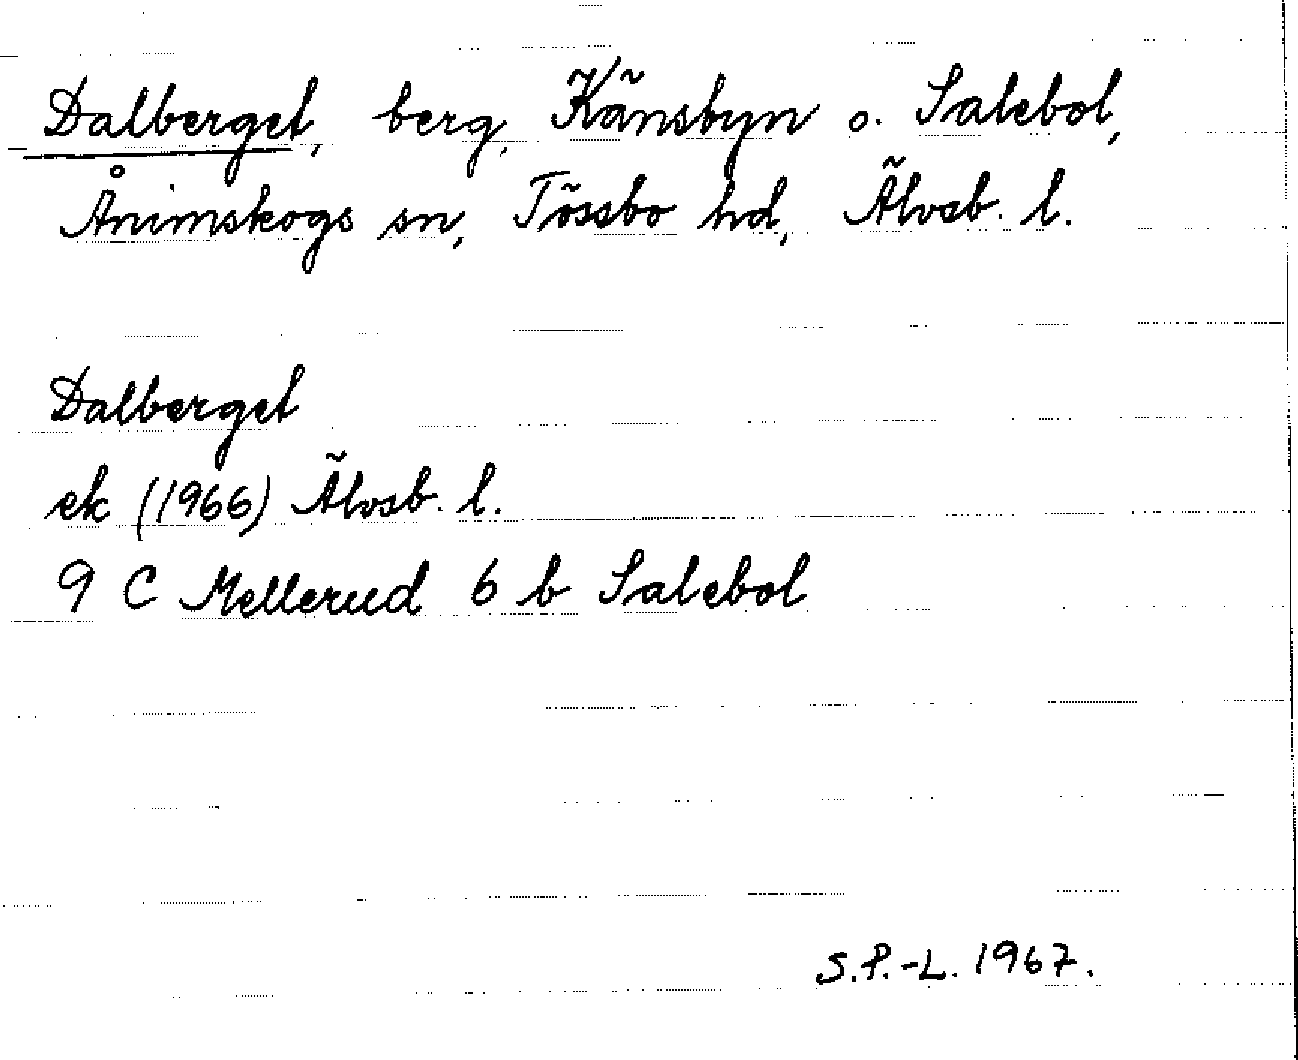 Dalberget, berg, Känsbyn o. Salebol,
Ånimskogs sn, Tössbo hd, Älvsb. l.
Dalberget
ek (1966) Älvsb. l.
9 C Mellerud 6 b Salebol
S.P.-L. 1967.